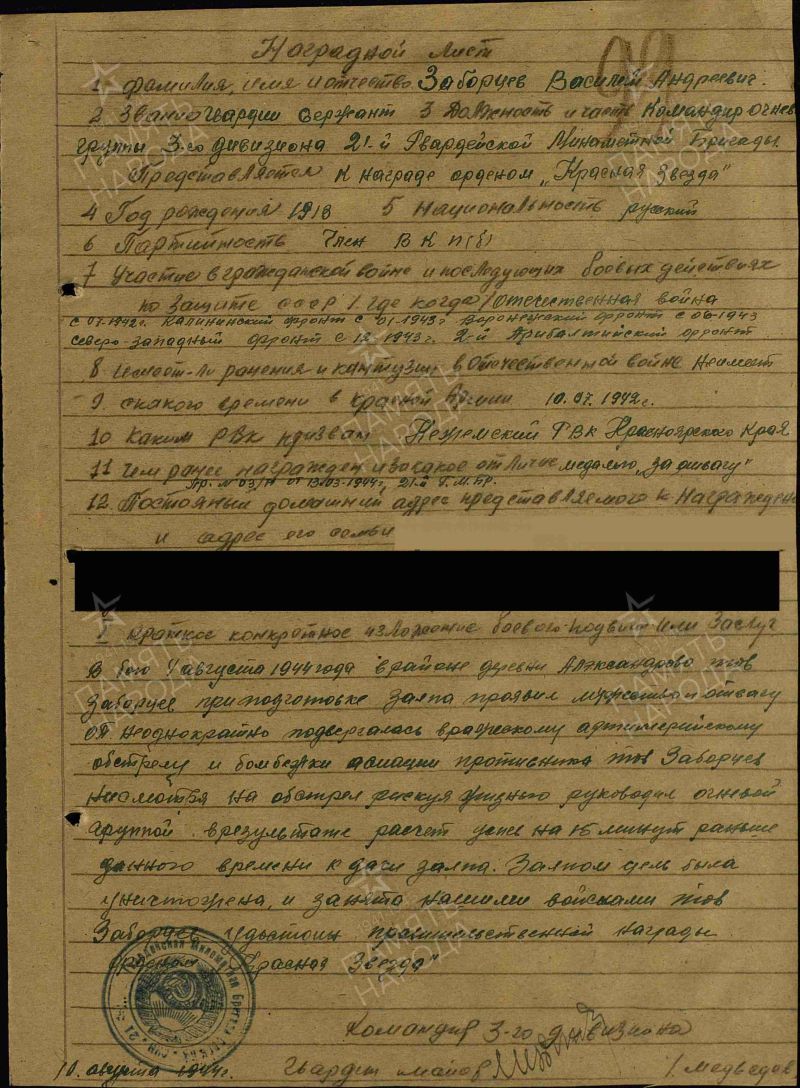 Наградной лист
1 фамилия, имя и отчество Заборцев Василий Андреевич.
2 Звание Гвардии Сержант 3 Должность и часть Командир огнев
группы 3-го дивизиона 21-й Гвардейской Минометной Бригады.
Представляется к награде орденом „Красная Звезда"
4 Год рождения 1918 5 Национальность русский
6 Партийность Член ВКП(б)
7 Участие в гражданской войне и последующих боевых действиях
по защите СССР (где когда) Отечественная война
с 07-1942г. Калининский фронт с 01-1943г Воронежский фронт с 06-1943
Северо-Западный фронт с 12-1943г. 2-й Прибалтийский фронт
8 имеет-ли ранения и контузии в отечественной войне Неимеет
9 с какого времени в красной Армии 10.07.1942г.
10 Каким РВК призван Кежемский РВК Красноярского Края
11 Чем ранее награжден и за какое отличие медалью „За отвагу"
Пр. № 03/Н от 13-03-1944г, 21-й Г.М.Бр.
12. Постоянный домашний адрес представляемого к Награжден
и адрес его семьи
краткое конкретное изложение боевого подвига или Заслуг
В бою 4 августа 1944 года в районе деревни Александрово тов
Заборцев при подготовке залпа проявил мужество и отвагу
ОП неоднократно подвергалась вражескому артилерийскому
обстрелу и бомбежки авиации противника тов Заборцев
несмотря на обстрел рискуя жизнью руководил огневой
группой. в результате расчет успел на 15 минут раньше
данного времени к дачи залпа. Залпом цель была
уничтожена, и занята нашими войсками тов
Заборцев удостоин правительственной награды
орденом „Красная Звезда"
Командир 3-го дивизиона
Гвардии майор /Медведев
10. августа 1944г.
ПАМЯТЬ НАРОДА